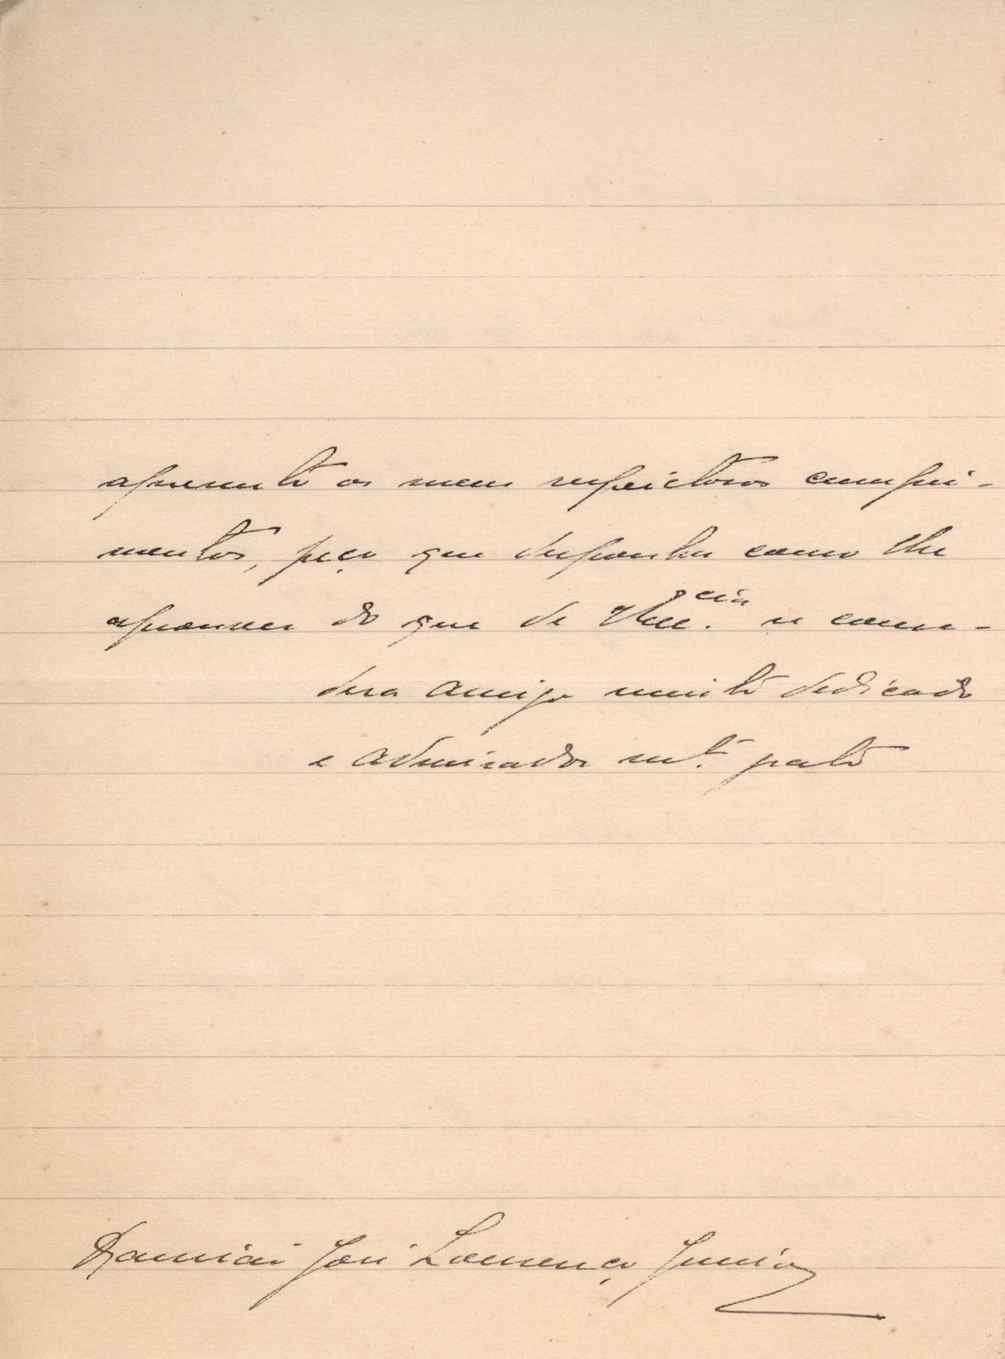 apresento os meus respeitosos cumpri-
mentos, peço que disponha como lhe
aprouver do que de V. Excia. se consi-
dera amigo muito dedicado
e admirador mto. grato
Damião José Lourenço Junior